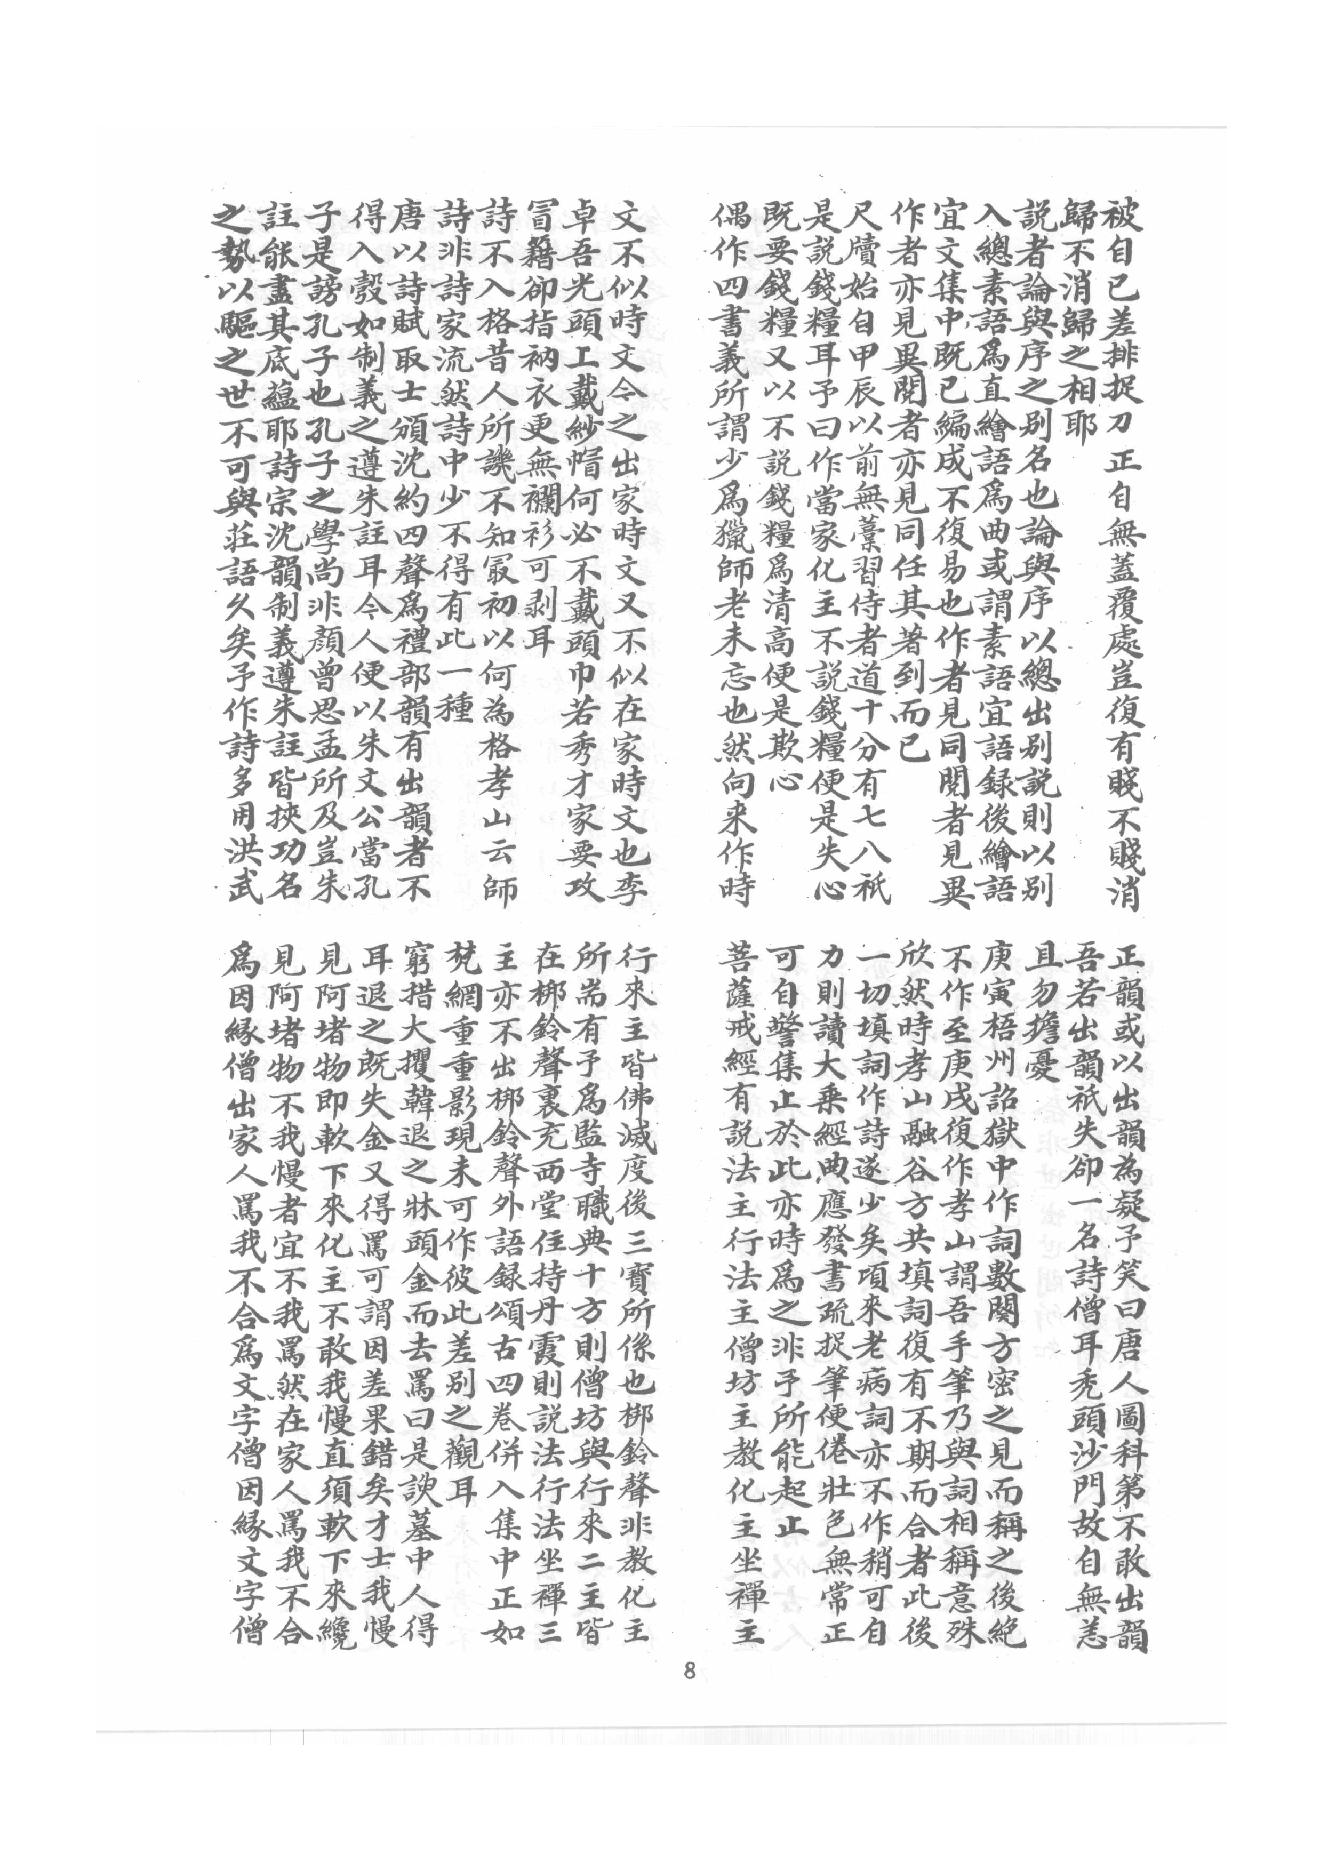 被自已差排捉刀正自無蓋覆處豈復有賤不賤消
歸不消歸之相耶
説者論與序之別名也論與序以總出別説則以別
入總素語爲直繪語爲曲或謂素語宜語録後繪語
宜文集中既已編成不復易也作者見同閱者見異
作者亦見異閱者亦見同任其著到而已
尺牘始自甲辰以前無藁習侍者道十分有七八祇
是説錢糧耳予曰作當家化主不説錢糧便是失心
既要錢糧又以不説錢糧爲清高便是欺心
偶作四書義所謂少爲獵師老未忘也然向来作時
文不似時文今之出家時文又不似在家時文也李
卓吾光頭上戴紗帽何必不戴頭巾若秀才家要攻
冒籍卻指衲衣更無襴衫可剥耳
詩不入格昔人所譏不知冣初以何為格孝山云師
詩非詩家流然詩中少不得有此一種
唐以詩賦取士頒沈約四聲爲禮部韻有出韻者不
得入彀如制義之遵朱註耳今人便以朱文公當孔
子是謗孔子也孔子之學尚非顏曾思孟所及豈朱
註能盡其底蘊耶詩宗沈韻制義遵朱註皆挾功名
之勢以驅之世不可與莊語久矣予作詩多用洪武
正韻或以出韻為疑予笑曰唐人圖科第不敢出韻
吾若出韻祇失卻一名詩僧耳禿頭沙門故自無恙
且勿擔憂
庚寅梧州詔獄中作詞數闋方密之見而稱之後絶
不作至庚戌復作孝山謂吾手筆乃與詞相稱意殊
欣然時孝山融谷方共填詞復有不期而合者此後
一切填詞作詩遂少矣項來老病詞亦不作稍可自
力則讀大乗經典應發書疏捉筆便倦壯色無常正
可自警集止於此亦時爲之非予所能起止
菩薩戒經有説法主行法主僧坊主教化主坐禪主
行來主皆佛滅度後三寳所係也梆鈴聲非教化主
所耑有予爲監寺職典十方則僧坊與行來二主皆
在梆鈴聲裏充西堂住持丹霞則説法行法坐禪三
主亦不出梆鈴聲外語録頌古四卷併入集中正如
梵網重重影現未可作彼此差別之觀耳
窮措大攫韓退之牀頭金而去罵曰是諛墓中人得
耳退之既失金又得罵可謂因差果錯矣才士我慢
見阿堵物即軟下來化主不敢我慢直須軟下來纔
見阿堵物不我慢者宜不我罵然在家人罵我不合
爲因緣僧出家人罵我不合爲文字僧因緣文字僧
8